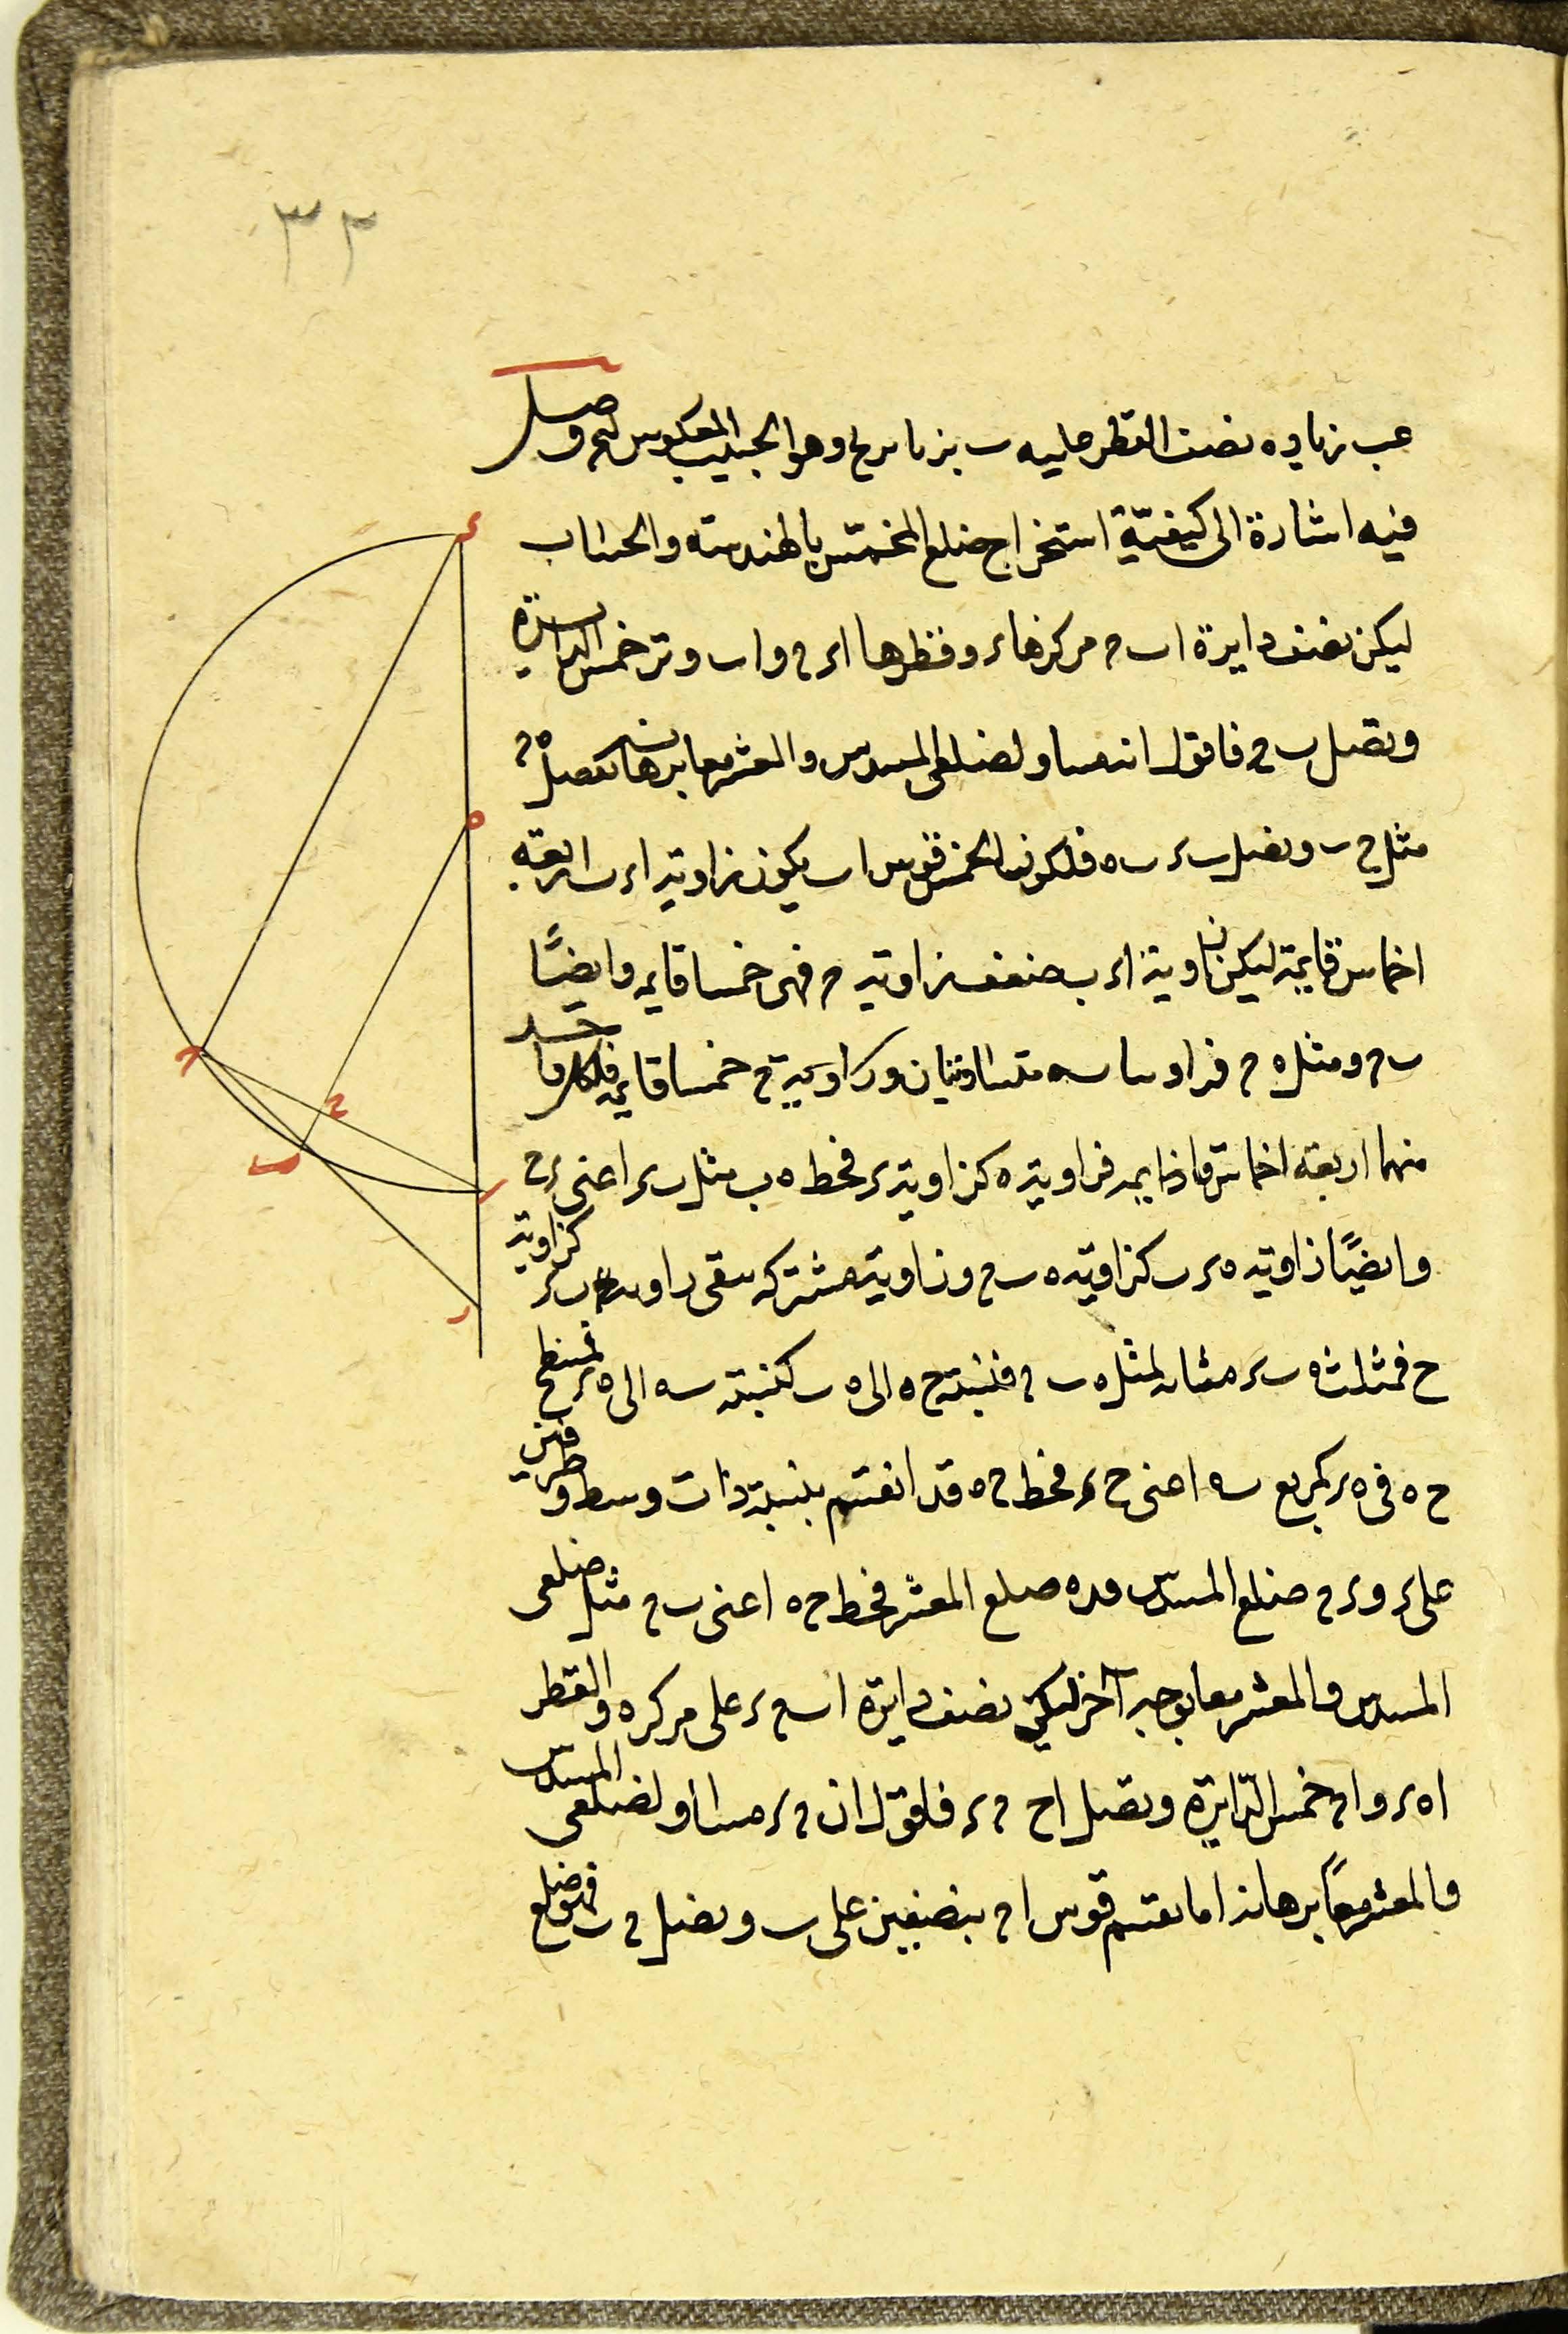 ٣٢
بزيادة نصف القطر عليه وهو الجيب المعكوس له وصل
فيه اشارة الى كيفيّة استخراج ضلع المخمّس بالهندسة والحساب
ليكن نصف دايرة ا ب ح مركزها ء وقطرها ا ء ح و ا ب وتر خمس الدايرة
ونصل ب ح فاقول انه مساو لضلعى المسدس والمعشر معا برهانه نفصل ه ح
مثل ح ب ونصل ب ء ب ه فلكون الخمس قوس ا ب يكون زاوية ا ء ب اربعة
اخماس قايمة ليكن زاوية ا ء ب ضعف زاوية ح فهى خمسا قايمة وايضًا
ب ح ومثل ه ح متساويتان وزاوية ح خمسا قايمة فلكل واحد
منهما اربعة اخماس قايمة فزاوية ه كزاوية ء فخط ه ب مثل ب ء اعنى ء ح
وايضًا زاوية ه ء ب كزاوية ه ب ح وزاوية مشتركة كزاوية
ح فمثلث ه ب ء مشابه لمثل ه ب ح فنسبة ح ه الى ه ب كنسبة ب ه الى ه ء فسطح
ح ه فى ه ء كمربع ب ه اعنى ح ء فخط ح ه قد انقسم بنسبة ذات وسط وطرفين
على ء و ء ح ضلع المسدس ضلع المعشر فخط ح ه اعنى ب ح مثل ضلعى
المسدس والمعشر معا بوجه آخر ليكن نصف دايرة ا ب ح ء على مركز ه والقطر
ا ه ء و ا ح خمس الدّايرة ونصل ا ح ح ء فاقول ان ح ء مساو لضلعى المسدس
والمعشر معًا برهانه انا نقسم قوس ا ح بنصفين على ب ونصل ح ب فهو ضلع
ء
ه
ح
ح
ب
ا
ر